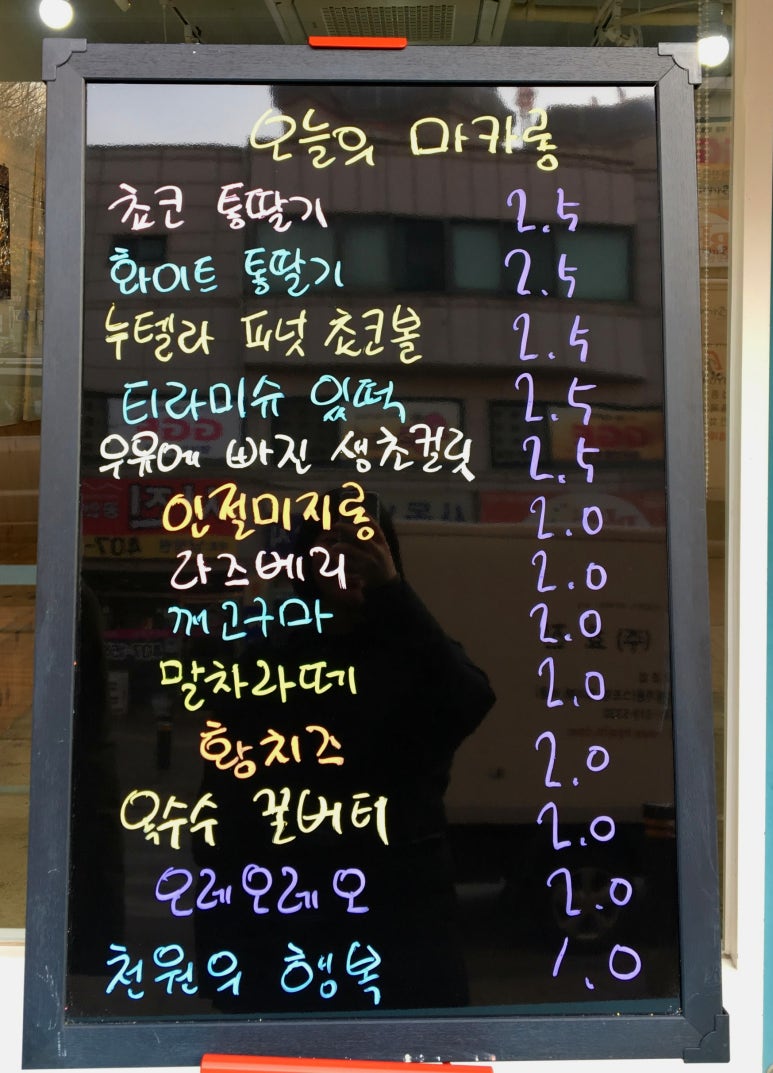 오늘의 마카롱
쵸코 통딸기 2.5
화이트 통딸기 2.5
누텔라 피넛 쵸코볼 2.5
티라미슈 입떡 2.5
우유에 빠진 생초컬릿 2.5
인절미지롱 2.0
라즈베리 2.0
깨고구마 2.0
말차라떼 2.0
황치즈 2.0
옥수수 꿀버터 2.0
오레오레오 2.0
천원의 행복 1.0